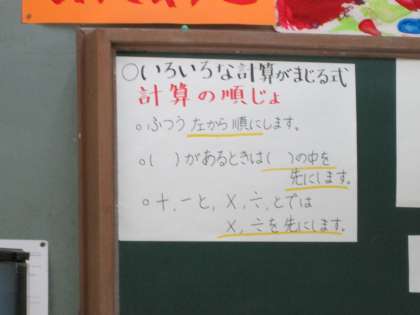 ○いろいろな計算がまじる式
計算の順じょ
○ふつう左から順にします。
○( )があるときは( )の中を
先にします。
○+,-と,×,÷,とでは
×,÷を先にします。